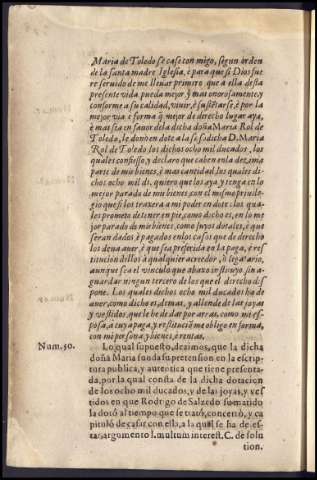 Maria de Toledo se case conmigo, segun orden
de la santa madre Iglesia, e para que si Dios fue
re seruido de me lleuar primero que a ella desta
presente vida pueda mejor y mas onorosamente, y
conforme a su calidad, viuir, è sustētarse, è por la
mejor via e forma q̄ mejor de derecho lugar aya,
è mas sea en fauor de la dicha doña Maria Rol de
Toledo, le doy en dote a la susodicha D. Maria
Rol de Toledo los dichos ocho mil ducados, los
quales confiesso, y declaro que caben en la dezima
parte de mis bienes, è mas cantidad, los quales di-
chos ocho mil dū. quiero que los aya, y tenga en lo
mejor parado de mis bienes, con el mismo priuile-
gio que si los traxera a mi poder en dote: los qua-
les prometo de tener en pie, como dicho es, en lo me
jor parado de mis bienes, como suyos dotales, è que
seran dados è pagados en los casos que de derecho
los deua auer, è que sea preferida en la paga, è res
titucion dellos à qualquier acreedor, ò legatario,
aunque sea el vinculo que abaxo instituyo, sin a-
guardar ningun tercero de los que el derecho dis-
pone. Los quales dichos ocho mil ducados ha de
auer, como dicho es, demas, y allende de las joyas
y vestidos, que le he de dar por arras, como mi es-
posa, a cuya paga, y restituciō me obligo en forma,
con mi persona, y bienes, è rentas.
Num. 50. Lo qual supuesto, dezimos, que la dicha
doña Maria funda su pretension en la escrip-
tura publica, y autentica que tiene presenta-
da, por la qual consta de la dicha dotacion
de los ocho mil ducados, y de las joyas, y ves
tidos en que Rodrigo de Salzedo su marido
la dotó al tiempo que se trató, concertò, y ca
pituló de casar con ella, a la qual se ha de es-
tar, argumento l. multum interest. C. de solu
tion.